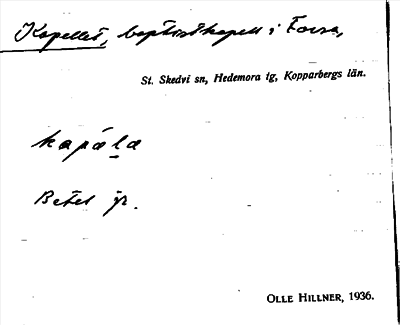 Kapellet, baptistkapell i Forsa,
St. Skedvi sn, Hedemora tg, Kopparbergs län.
kapäla
Betel jr.
OLLE HILLNER, 1936.